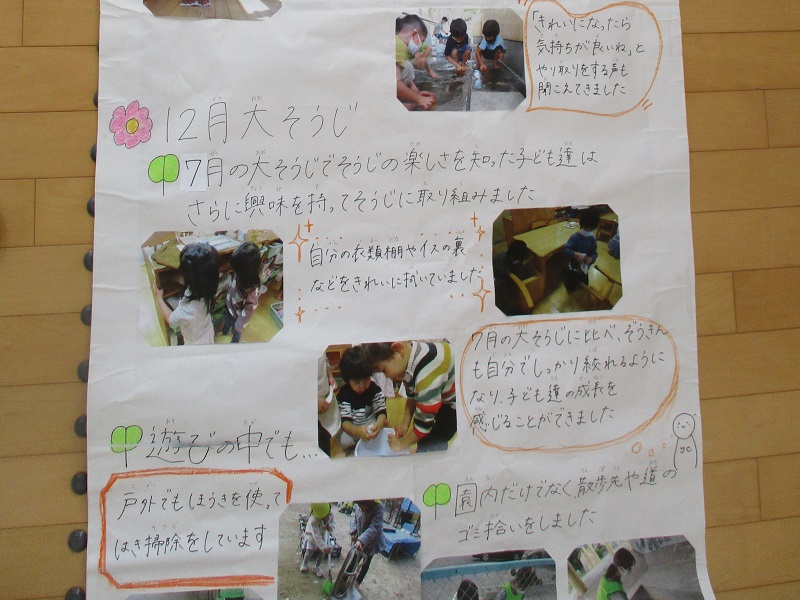 「きれいになったら
気持ちが良いね」と
やり取りをする声も
聞こえてきました
12月大そうじ
7月の大そうじでそうじの楽しさを知った子ども達は
さらに興味を持ってそうじに取り組みました
自分の衣類棚やイスの裏
などをきれいに拭いていました
7月の大そうじに比べ、ぞうきん
も自分でしっかり絞れるように
なり、子ども達の成長を
感じることができました
遊びの中でも...
戸外でもほうきを使って
はき掃除をしています
園内だけでなく散歩先や道の
ゴミ拾いをしました